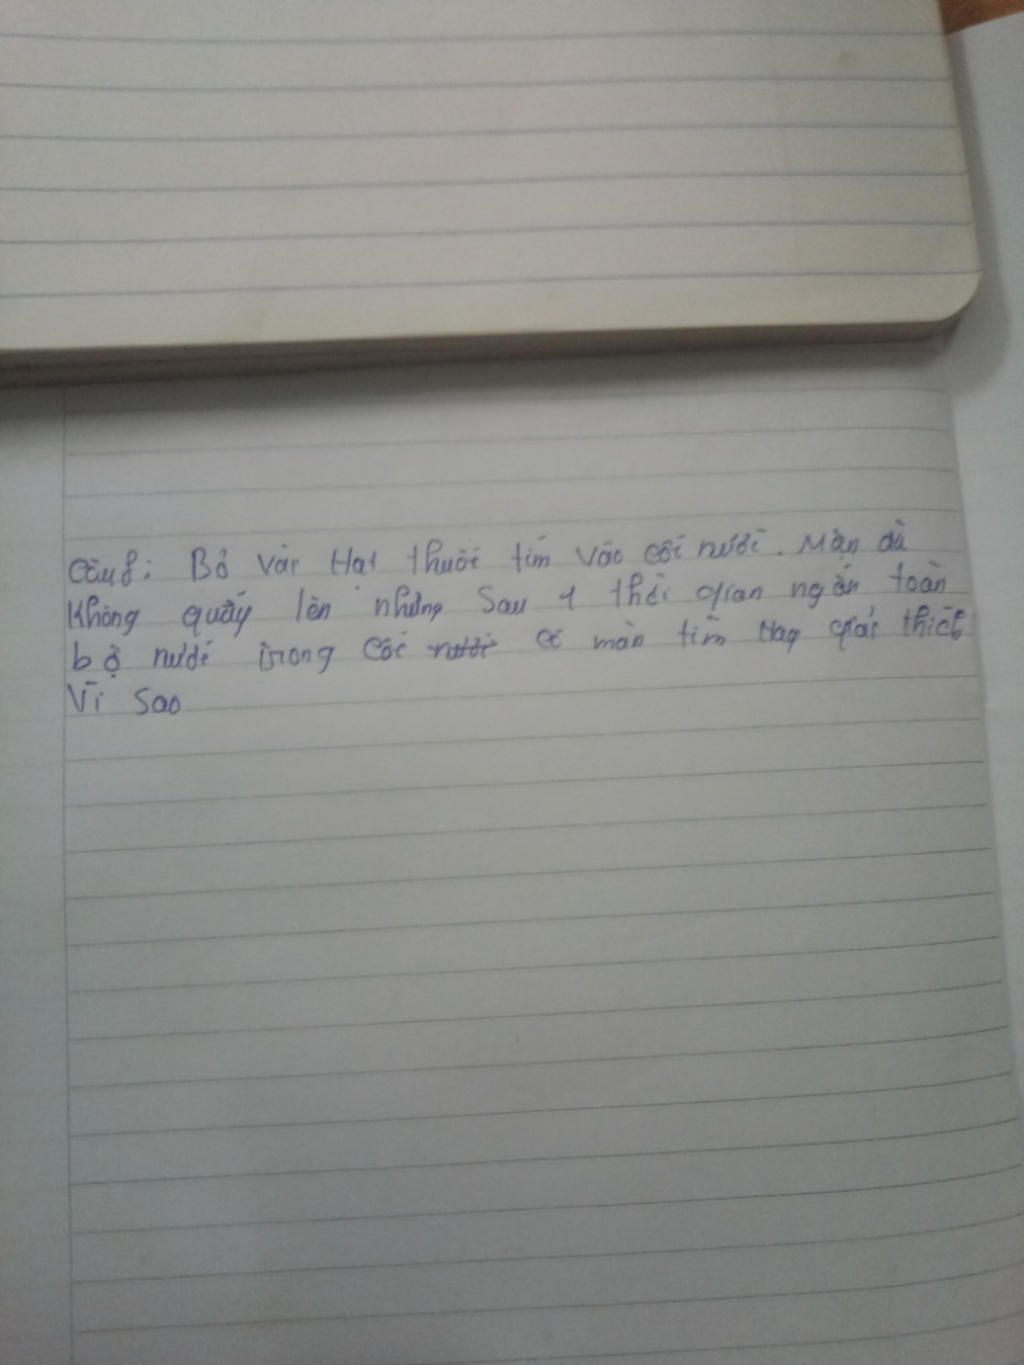 Câu8: Bỏ vài Hạt thuốc tím vào cốc nước. Mặn dù
Không quấy lên nhưng sau 1 thời gian ngắn toàn
bộ nước trong cốc nước có màn tím Hay giải thích
Vì sao